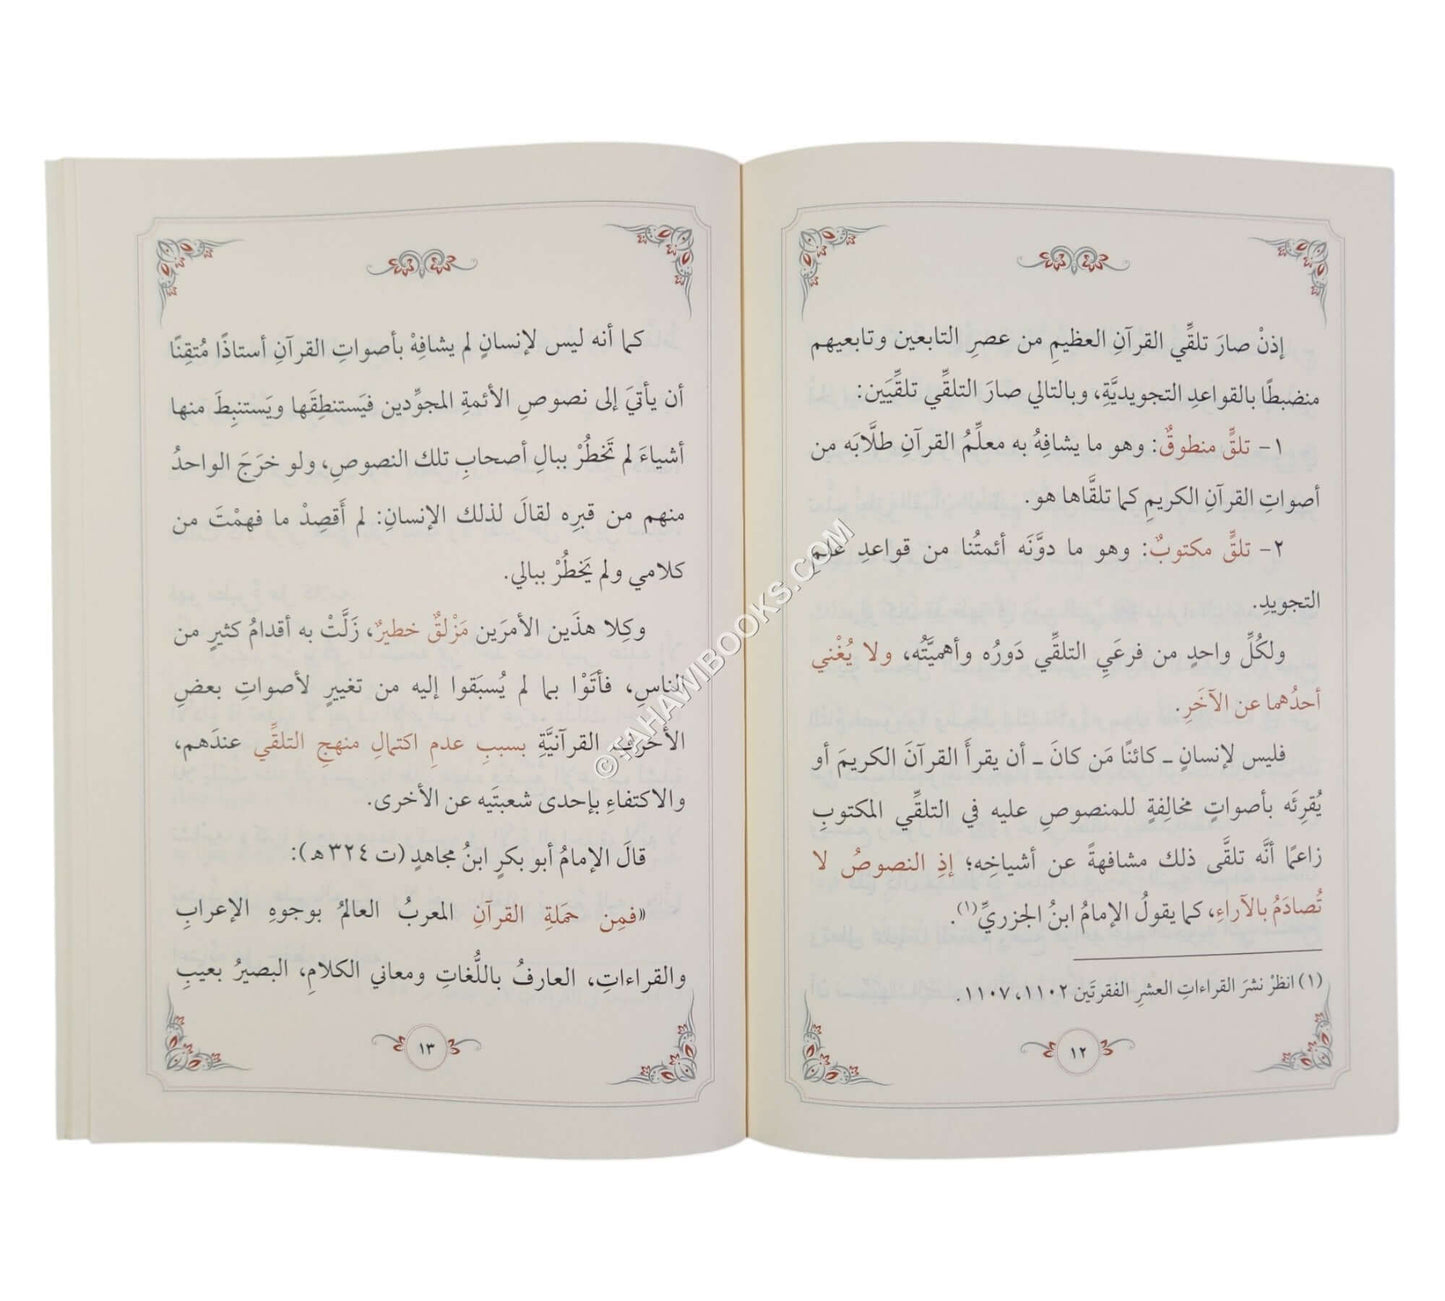 إذنْ صارَ تلقِّي القرآنِ العظيمِ من عصرِ التابعين وتابعيهم
منضبطًا بالقواعدِ التجويديَّةِ، وبالتالي صارَ التلقِّي تلقِّيَين:
١- تلقٍّ منطوقٌ: وهو ما يشافِهُ به معلِّمُ القرآنِ طلَّابَه من
أصواتِ القرآنِ الكريمِ كما تلقَّاها هو.
٢- تلقٍّ مكتوبٌ: وهو ما دوَّنَه أئمتُنا من قواعدِ عِلمِ
التجويدِ.
ولكُلِّ واحدٍ من فرعَيِ التلقِّي دَورُه وأهميَّتُه، ولا يُغْني
أحدُهما عن الآخَرِ.
فليس لإنسانٍ ـ كائنًا مَن كانَ ـ أن يقرأَ القرآنَ الكريمَ أو
يُقرِئَه بأصواتٍ مخالِفةٍ للمنصوصِ عليه في التلقِّي المكتوبِ
زاعمًا أنَّه تلقَّى ذلك مشافهةً عن أشياخِه؛ إذِ النصوصُ لا
تُصادَمُ بالآراءِ، كما يقولُ الإمامُ ابنُ الجزريِّ(١).
(١) انظرْ نشرَ القراءاتِ العشرِ الفقرتَين ١١٠٢، ١١٠٧.
١٢
كما أنه ليس لإنسانٍ لم يشافِهْ بأصواتِ القرآنِ أستاذًا مُتقِنًا
أن يأتيَ إلى نصوصِ الأئمةِ المجوِّدين فيَستنطِقَها ويَستنبِطَ منها
أشياءَ لم تَخطُرْ ببالِ أصحابِ تلك النصوصِ، ولو خرَجَ الواحدُ
منهم من قبرِه لقالَ لذلك الإنسانِ: لم أَقصِدْ ما فهمْتَ من
كلامي ولم يَخطُرْ ببالي.
وكِلا هذَين الأمرَين مَزْلقٌ خطيرٌ، زَلَّتْ به أقدامُ كثيرٍ من
الناسِ، فأتَوْا بما لم يُسبَقوا إليه من تغييرٍ لأصواتِ بعضِ
الأحرفِ القرآنيَّةِ بسببِ عدمِ اكتمالِ منهجِ التلقِّي عندَهم،
والاكتفاءِ بإحدى شعبتَيه عن الأخرى.
قالَ الإمامُ أبو بكرٍ ابنُ مجاهدٍ (ت ٣٢٤ هـ):
«فمِن حمَلةِ القرآنِ المعربُ العالمُ بوجوهِ الإعرابِ
والقراءاتِ، العارفُ باللُّغاتِ ومعاني الكلامِ، البصيرُ بعيبِ
١٣
© TAHAWIBOOKS.COM